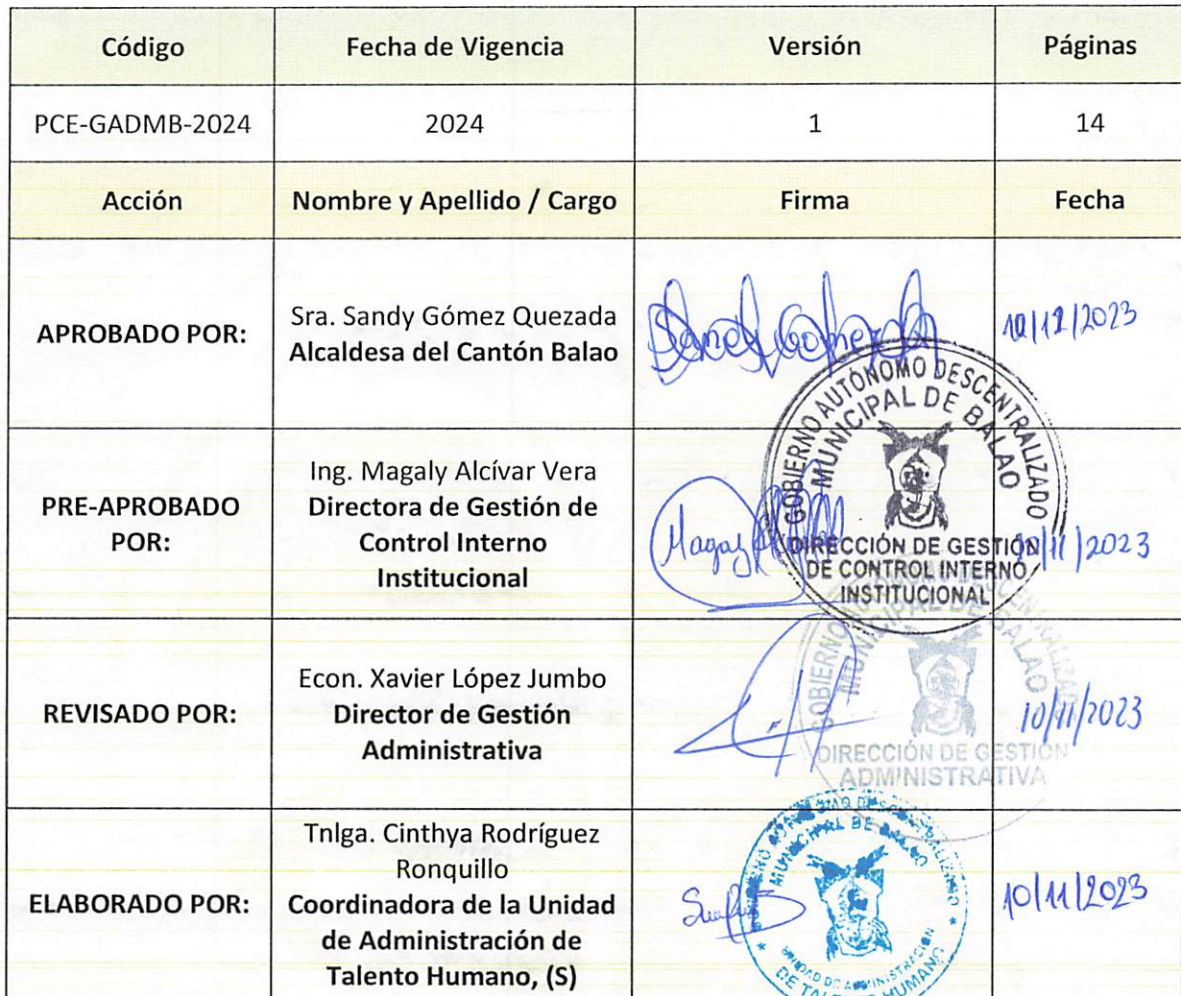 Código Fecha de Vigencia Versión Páginas
PCE-GADMB-2024 2024 1 14
Acción Nombre y Apellido / Cargo Firma Fecha
APROBADO POR:
Sra. Sandy Gómez Quezada
Alcaldesa del Cantón Balao
Sandy Gomez
/2023
GOBIERNO AUTÓNOMO DESCENTRALIZADO
MUNICIPAL DE BALAO
DIRECCIÓN DE GESTIÓN
DE CONTROL INTERNO
INSTITUCIONAL
PRE-APROBADO
POR:
Ing. Magaly Alcívar Vera
Directora de Gestión de
Control Interno
Institucional
Magaly
10/11/2023
REVISADO POR:
Econ. Xavier López Jumbo
Director de Gestión
Administrativa
MUNICIPAL DE BALAO
DIRECCIÓN DE GESTIÓN
ADMINISTRATIVA
10/11/2023
ELABORADO POR:
Tnlga. Cinthya Rodríguez
Ronquillo
Coordinadora de la Unidad
de Administración de
Talento Humano, (S)
MUNICIPAL DE BALAO
UNIDAD DE ADMINISTRACIÓN
DE TALENTO HUMANO
10/11/2023